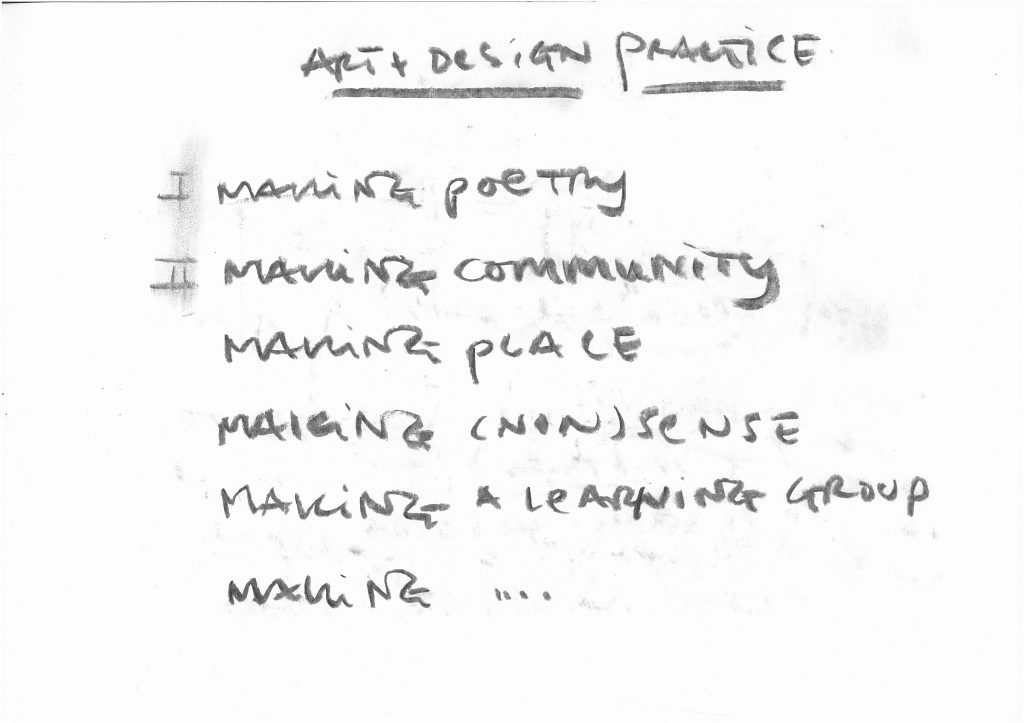 ART + DESIGN PRACTICE
I MAKING POETRY
II MAKING COMMUNITY
MAKING PLACE
MAKING (NON)SENSE
MAKING A LEARNING GROUP
MAKING ....